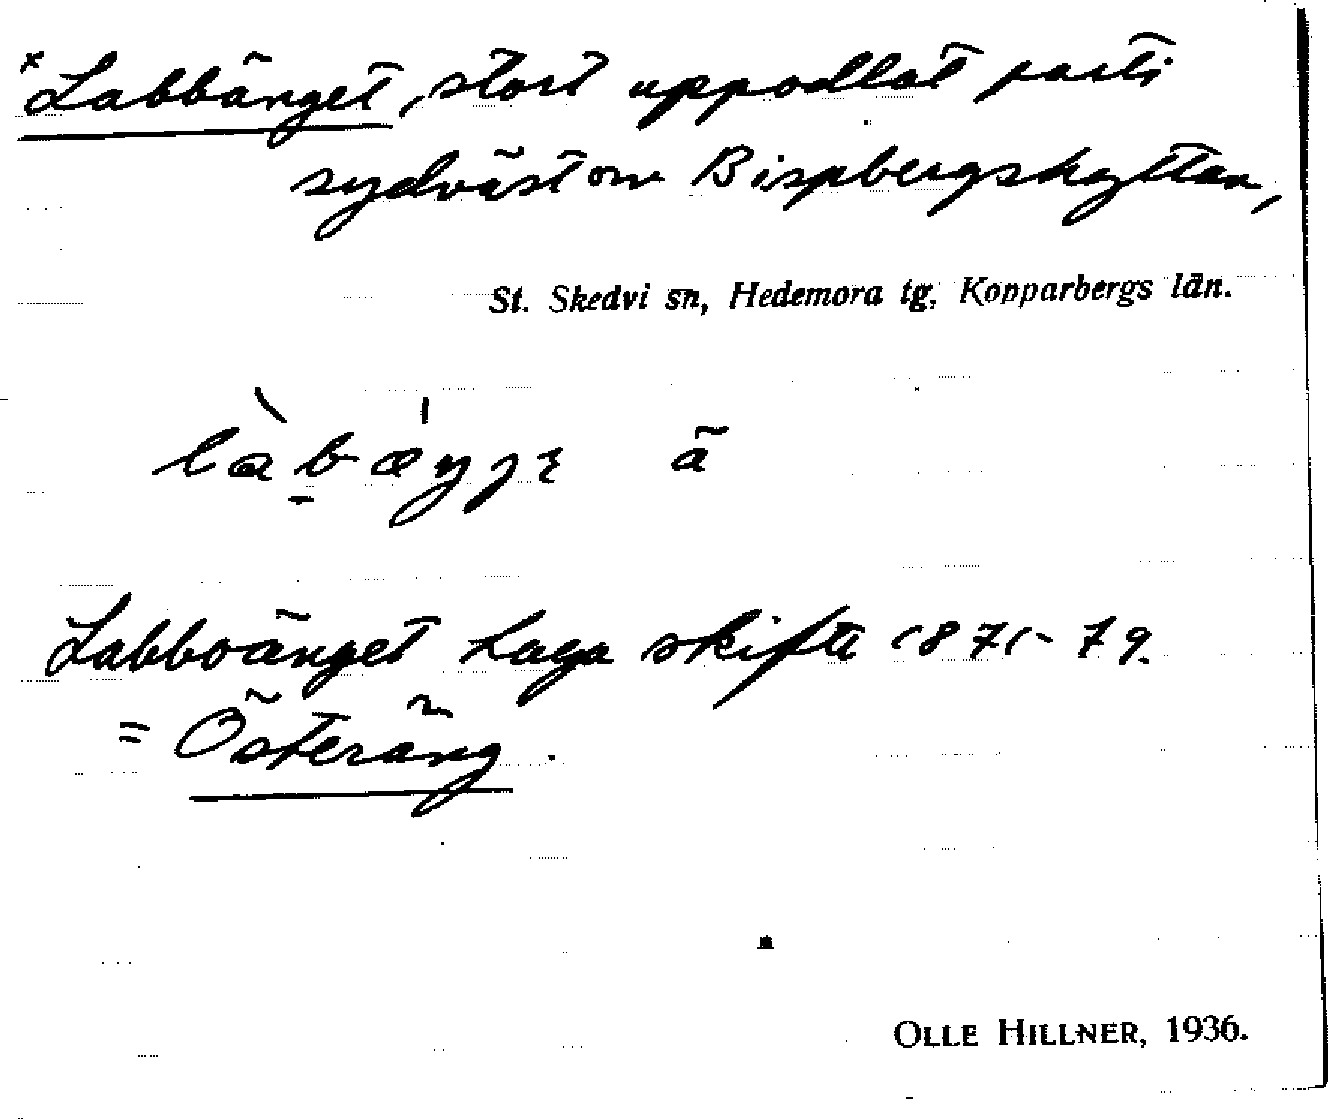 *Labbänget, stort uppodlat parti
sydväst om Bispbergshyttan,
St. Skedvi sn, Hedemora tg, Kopparbergs län.
ā
Labboänget Laga skifte 1871-79.
= Österäng.
OLLE HILLNER, 1936.